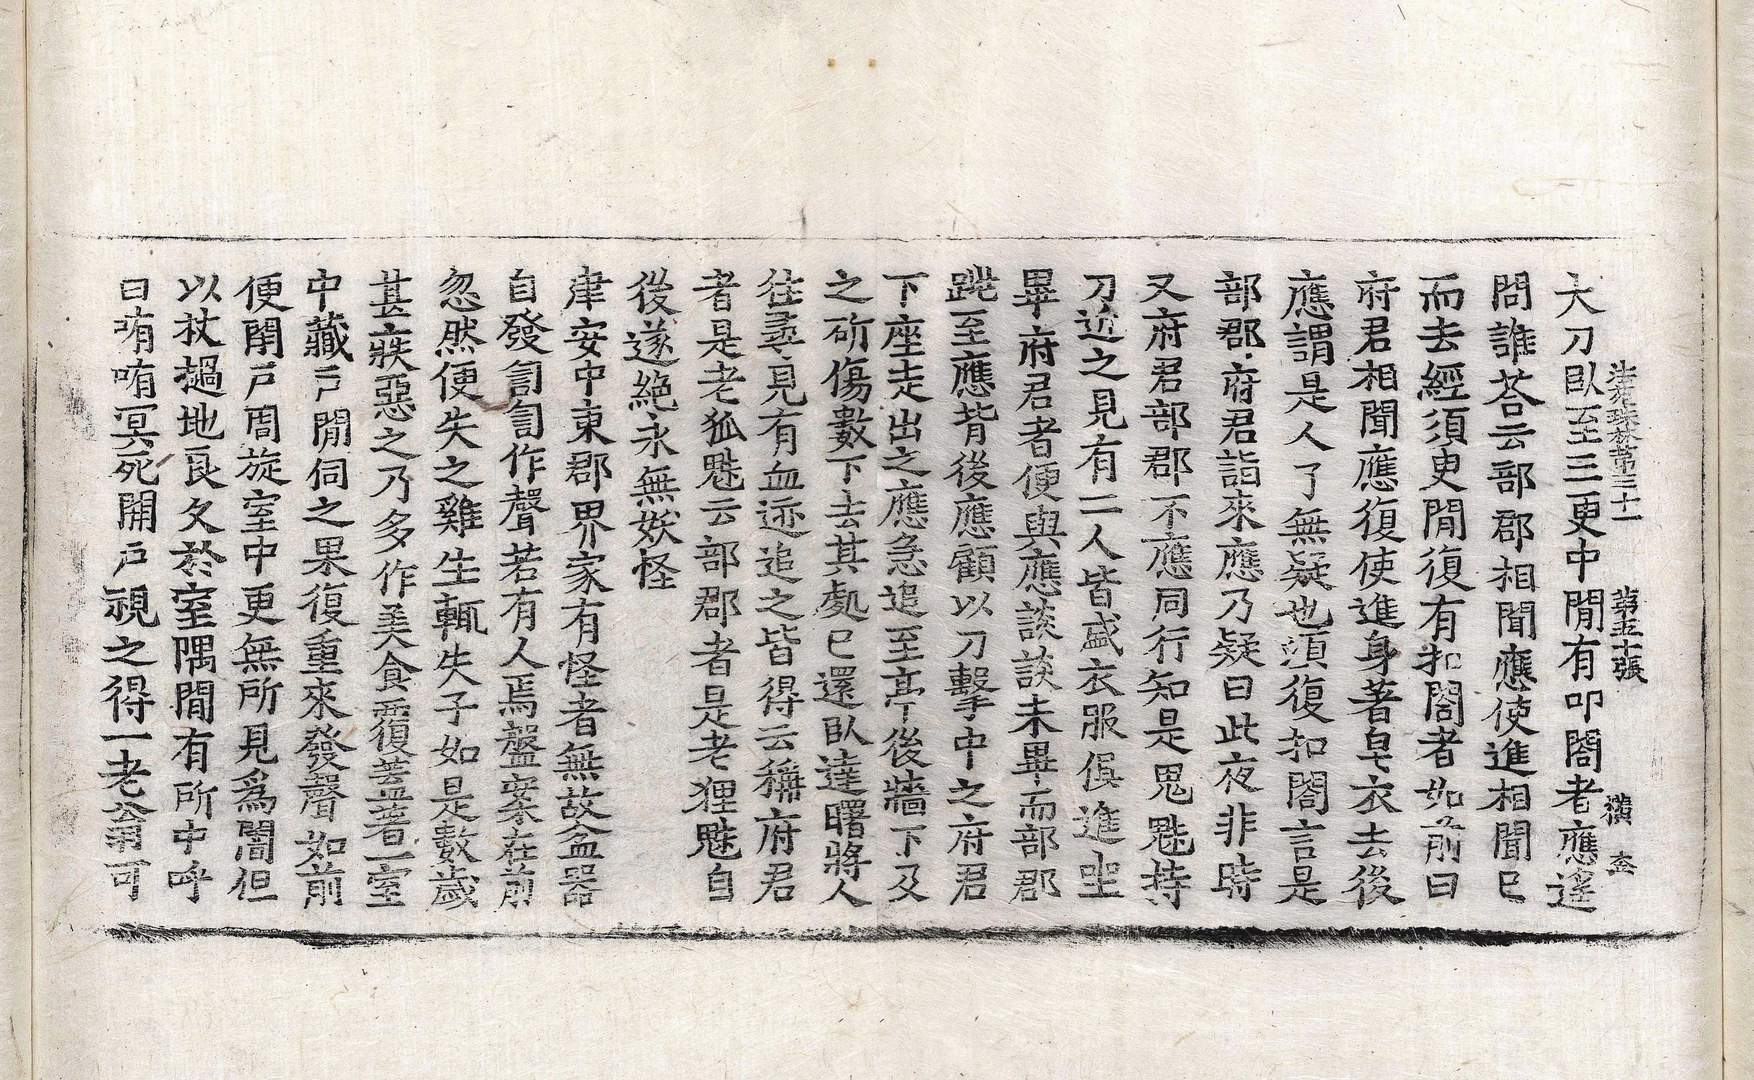 法苑珠林第三十一 第五十張 橫 杢
大刀臥至三更中閒有叩閤者應遙
問誰荅云部郡相聞應使進相聞已
而去經須臾閒復有扣閤者如前曰
府君相聞應復使進身著皂衣去後
應謂是人了無疑也須復扣閤言是
部郡府君詣來應乃疑曰此夜非時
又府君部郡不應同行知是鬼魅持
刀近之見有二人皆盛衣服俱進坐
畢府君者便與應談談未畢而部郡
跳至應背後應顧以刀擊中之府君
下座走出之應急追至亭後牆下及
之斫傷數下去其處已還臥達曙將人
往尋見有血迹追之皆得云稱府君
者是老狐魅云部郡者是老狸魅自
後遂絶永無妖怪
建安中東郡界家有怪者無故盆器
自發訇訇作聲若有人焉盤案在前
忽然便失之雞生輒失子如是數歲
甚疾惡之乃多作美食覆蓋著一室
中藏戶閒伺之果復重來發聲如前
便閉戶周旋室中更無所見爲闇但
以杖撾地良久於室隅閒有所中呼
曰哊哊冥死開戶視之得一老翁可